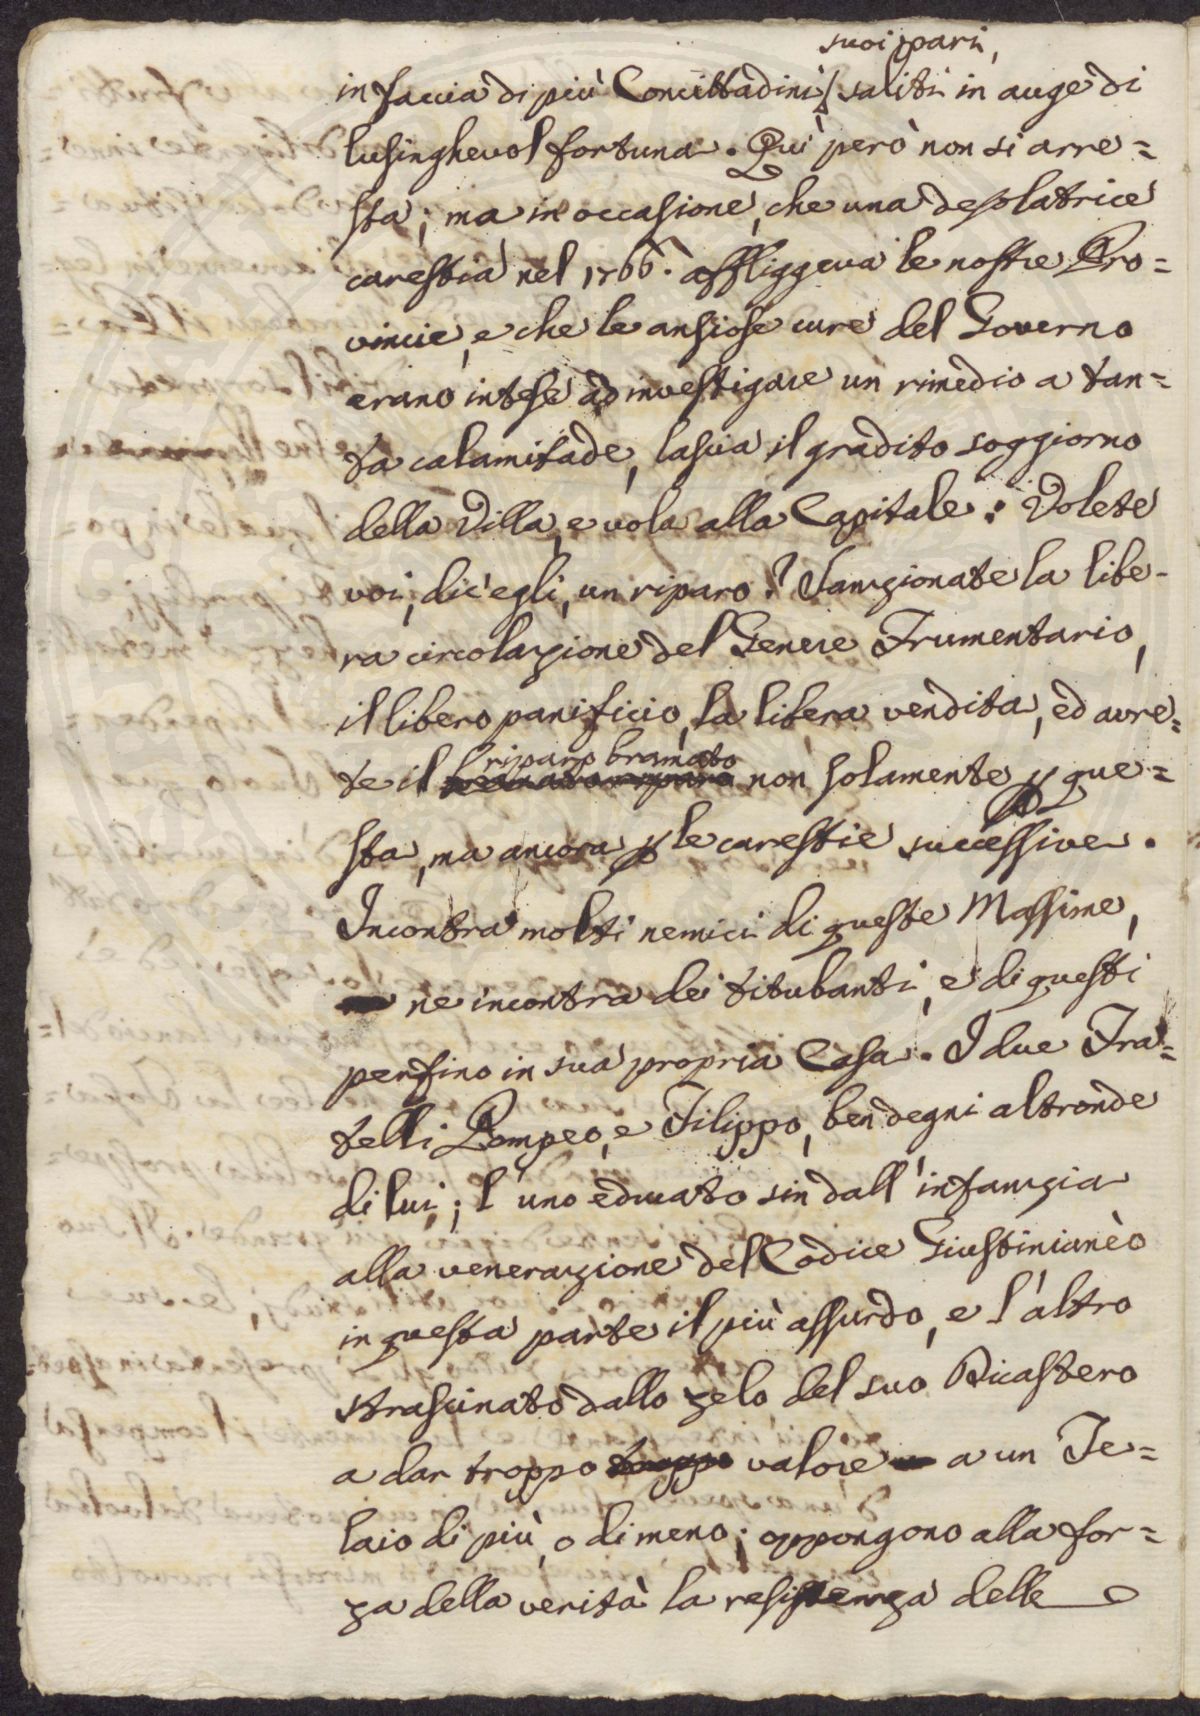 suoi pari,
in faccia di più Concittadini saliti in auge di
lusinghevol fortuna. Qui però non si arre=
sta; ma in occasione, che una desolatrice
carestia nel 1766. affliggeva le nostre Pro=
vincie, e che le ansiose cure del Governo
erano intese ad investigare un rimedio a tan=
ta calamitade, lascia il gradito soggiorno
della Villa, e vola alla Capitale: Volete
voi, dic'egli, un riparo? Sanzionate la libe-
ra circolazione del Genere Frumentario,
il libero panificio, la libera vendita, ed avre=
riparo bramato
te il bramato riparo non solamente p que=
sta, ma ancora p le carestie successive.
Incontra molti nemici di queste Massime,
ne incontra dei titubanti, e di questi
perfino in sua propria Casa. I due Fra=
telli Pompeo, e Filippo, ben degni altronde
di lui; l'uno educato sin dall'infanzia
alla venerazione del Codice Giustinianèo
in questa parte il più assurdo, e l'altro
strascinato dallo zelo del suo Dicastero
a dar troppo troppo valore a un Te=
laio di più, o di meno; oppongono alla for=
za della verità la resistenza delle